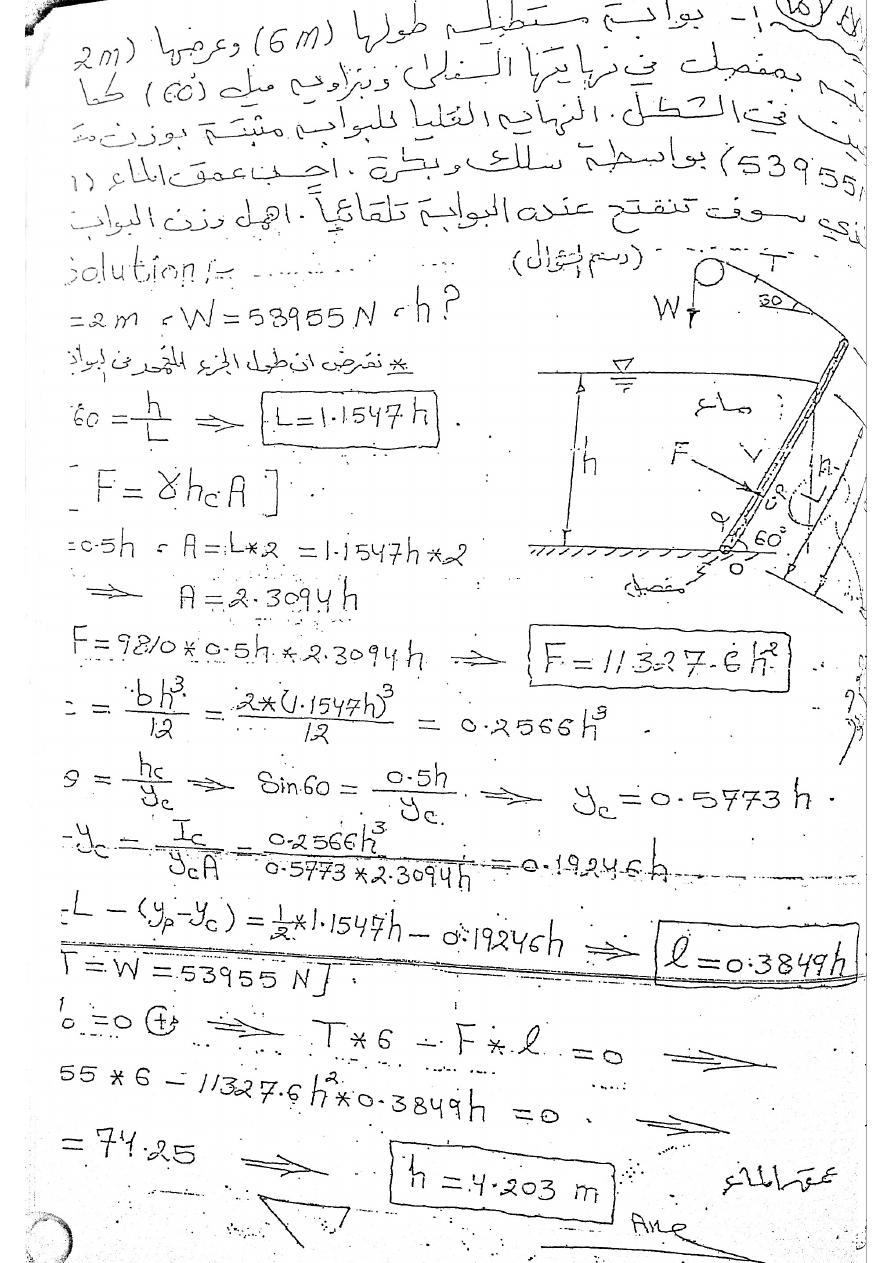 ١- بوابة مستطيلة طولها (6m) وعرضها (2m
بمفصل في نهايتها السفلى وبزاوية ميل (60°) كما
في الشكل . النهايه العليا للبوابه مثبتة بوزن
53955) بواسطة سلك وبكرة . احسب عمق الماء (h
سوف تنفتح عنده البوابة تلقائياً . اهمل وزن البوابة
solution :- (رسم السؤال)
=2m , W=53955N , h?
* نفرض ان طول الجزء المغمور من البوابة
60 = h/L ⇒ L=1.1547h .
[F = γhcA]
=0.5h , A=L*2 =1.1547h*2
⇒ A=2.3094h
F=9810*0.5h*2.3094h ⇒ F=11327.6h²
= bh³/12 = 2*(1.1547h)³/12 = 0.2566h³ .
θ = hc/yc ⇒ Sin60 = 0.5h/yc ⇒ yc=0.5773h .
-yc = Ic/ycA = 0.2566h³/0.5773*2.3094h = 0.19246h
L - (yp-yc) = 1/2*1.1547h - 0.19246h ⇒ l=0.3849h
T=W=53955N] .
o =0 ⊕ ⇒ T*6 - F*l =0 ⇒
55*6 - 11327.6h²*0.3849h =0 . ⇒
= 74.25 ⇒ h=4.203 m عمق الماء
Ans
T
30
W
ماء
h
F
L
c.p
l
60°
O
مفصل